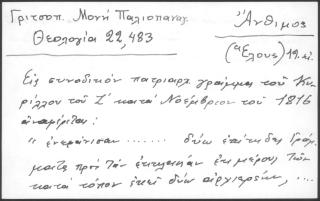 Γριτσοπ. Μονή Παλιοπαναγ.
Θεολογία 22, 483
Ἄνθιμος
(Ἕλους) 19 αἰ.
Εἰς συνοδικὸν πατριαρχ. γράμμα τοῦ Κυ-
ρίλλου τοῦ Ϛ΄ κατὰ Νοέμβριον τοῦ 1816
ἀναφέρεται:
" ἐνεφάνισαν ...... δύω ἐπίτηδες Γράμ-
ματα πρὸ τῶν ἐκ μέρους τῶν
κατὰ τόπον ἐκεῖ δύω ἀρχιερέων, ....